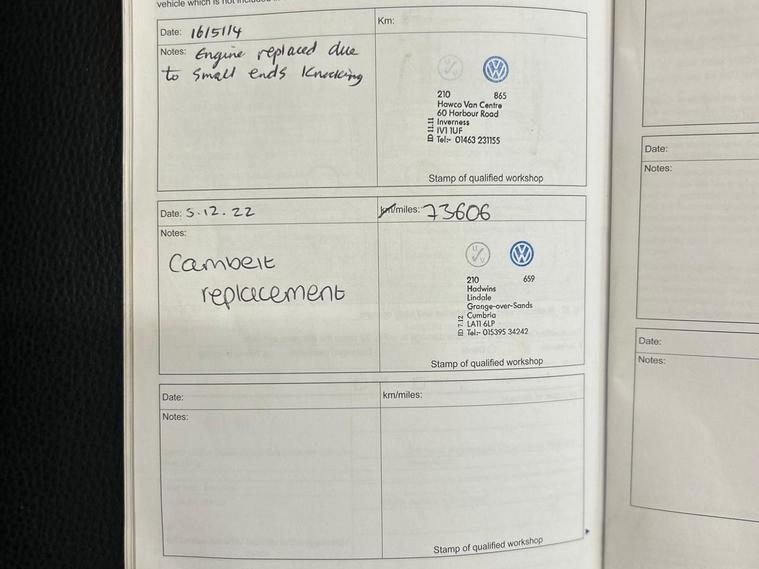 vehicle which is not included in
Date: 16/5/14
Km:
Notes: Engine replaced due
to small ends knocking
210 865
Hawco Van Centre
60 Harbour Road
Inverness
IV1 1UF
Tel:- 01463 231155
ID 11.11
Stamp of qualified workshop
Date: 5.12.22
km/miles: 73606
Notes:
Cambelt
replacement
210 659
Hadwins
Lindale
Grange-over-Sands
Cumbria
LA11 6LP
Tel:- 015395 34242
ID 7.12
Stamp of qualified workshop
Date:
km/miles:
Notes:
Stamp of qualified workshop
Date:
Notes:
Date:
Notes: